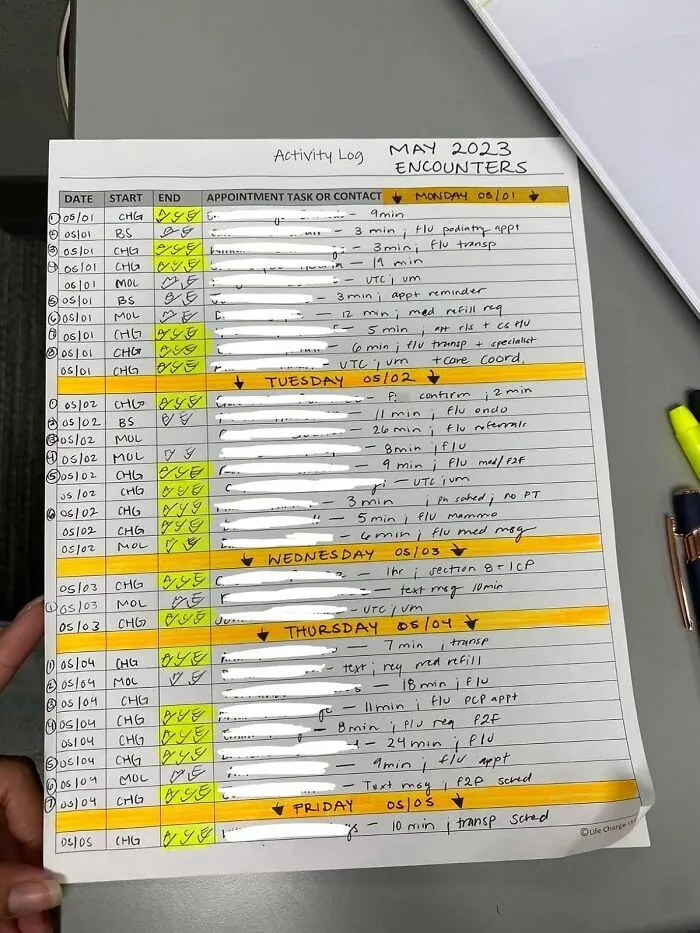 Activity Log MAY 2023
ENCOUNTERS
DATE START END APPOINTMENT TASK OR CONTACT ↓ MONDAY 05/01 ↓
① 05/01 CHG — 9min
② 05/01 BS — 3 min ; f/u podiatry appt
③ 05/01 CHG — 3min ; f/u transp
④ 05/01 CHG — 19 min
05/01 MOL — UTC ; vm
⑤ 05/01 BS — 3min ; appt reminder
⑥ 05/01 MOL — 12 min ; med refill req
05/01 CHG — 5 min ; r/s + cs f/u
⑧ 05/01 CHG — 6 min ; f/u transp + specialist
05/01 CHG — UTC ; vm + care coord.
↓ TUESDAY 05/02 ↓
① 05/02 CHG — confirm ; 2 min
② 05/02 BS — 11 min ; f/u endo
③ 05/02 MOL — 26 min ; f/u referrals
④ 05/02 MOL — 8min ; f/u
⑤ 05/02 CHG — 9 min ; f/u med/F2F
05/02 CHG — UTC ; vm
⑥ 05/02 CHG — 3 min ; sched ; no PT
05/02 CHG — 5 min ; f/u mammo
05/02 MOL — 6 min ; f/u med msg
↓ WEDNESDAY 05/03 ↓
05/03 CHG — 1hr ; section 8 + ICP
① 05/03 MOL — text msg 10min
05/03 CHG — UTC ; vm
↓ THURSDAY 05/04 ↓
① 05/04 CHG — 7 min ; transp
② 05/04 MOL — text ; req med refill
③ 05/04 CHG — 18 min ; f/u
④ 05/04 CHG — 11min ; f/u PCP appt
05/04 CHG — 8min ; f/u req F2F
⑤ 05/04 CHG — 24 min ; f/u
⑥ 05/04 MOL — 9min ; f/u appt
⑦ 05/04 CHG — Text msg ; F2F sched
↓ FRIDAY 05/05 ↓
05/05 CHG — 10 min ; transp sched
© Life Charge